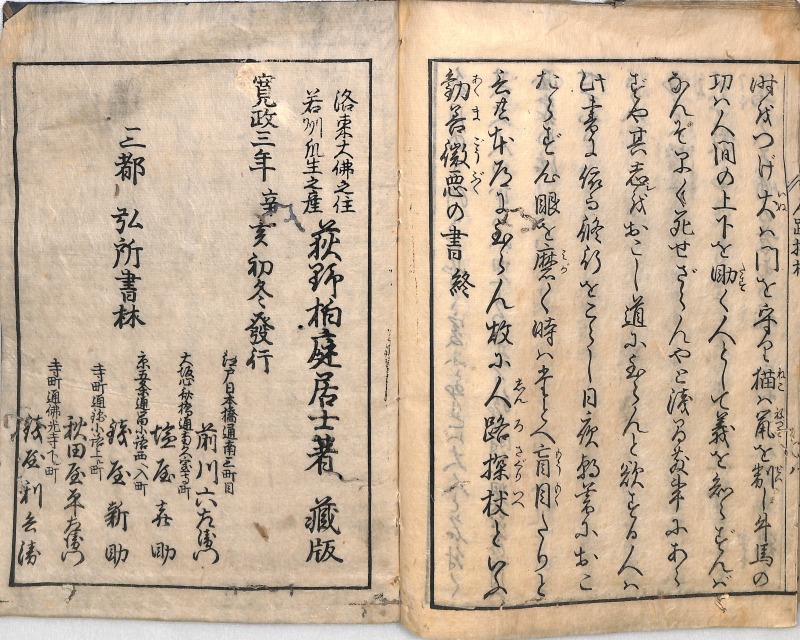 時をつげ犬は門を守り猫は鼠を制し牛馬の
功は人間の上下を助く人として義を知らずんば
なんぞ早く死せざらんやと浅間敷事にあら
ずや其志をおこし道に至らんと欲する人は
此書に依て修行をこらし日夜
たらず心眼を磨く時はたとへ盲目たりと
至らん故に人路探杖といふ
勧善懲悪の書終
洛東大佛之住
若州
之産
荻野柏庭居士著 藏版
寛政三年辛亥初冬發行
三都 弘所書林
江戸日本橋通南三町目
前川六左衛門
大坂心斎橋通南久宝寺町
塩屋喜助
京五条通富小路西へ入町
錢屋新助
寺町通 小路上ル町
秋田屋平左衛門
寺町通佛光寺下ル町
錢屋利兵衛